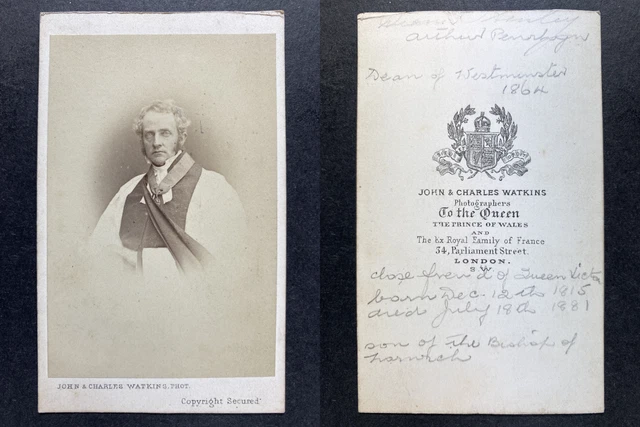 JOHN & CHARLES WATKINS, PHOT.
Copyright Secured
Dean Stanley
Arthur Penrhyn
Dean of Westminster
1864
JOHN & CHARLES WATKINS
Photographers
To the Queen
THE PRINCE OF WALES
AND
The Ex Royal Family of France
34, Parliament Street.
LONDON.
S W
close friend of Queen Victa
born Dec. 12th 1815
died July 18th 1881
son of the Bishop of
Norwich